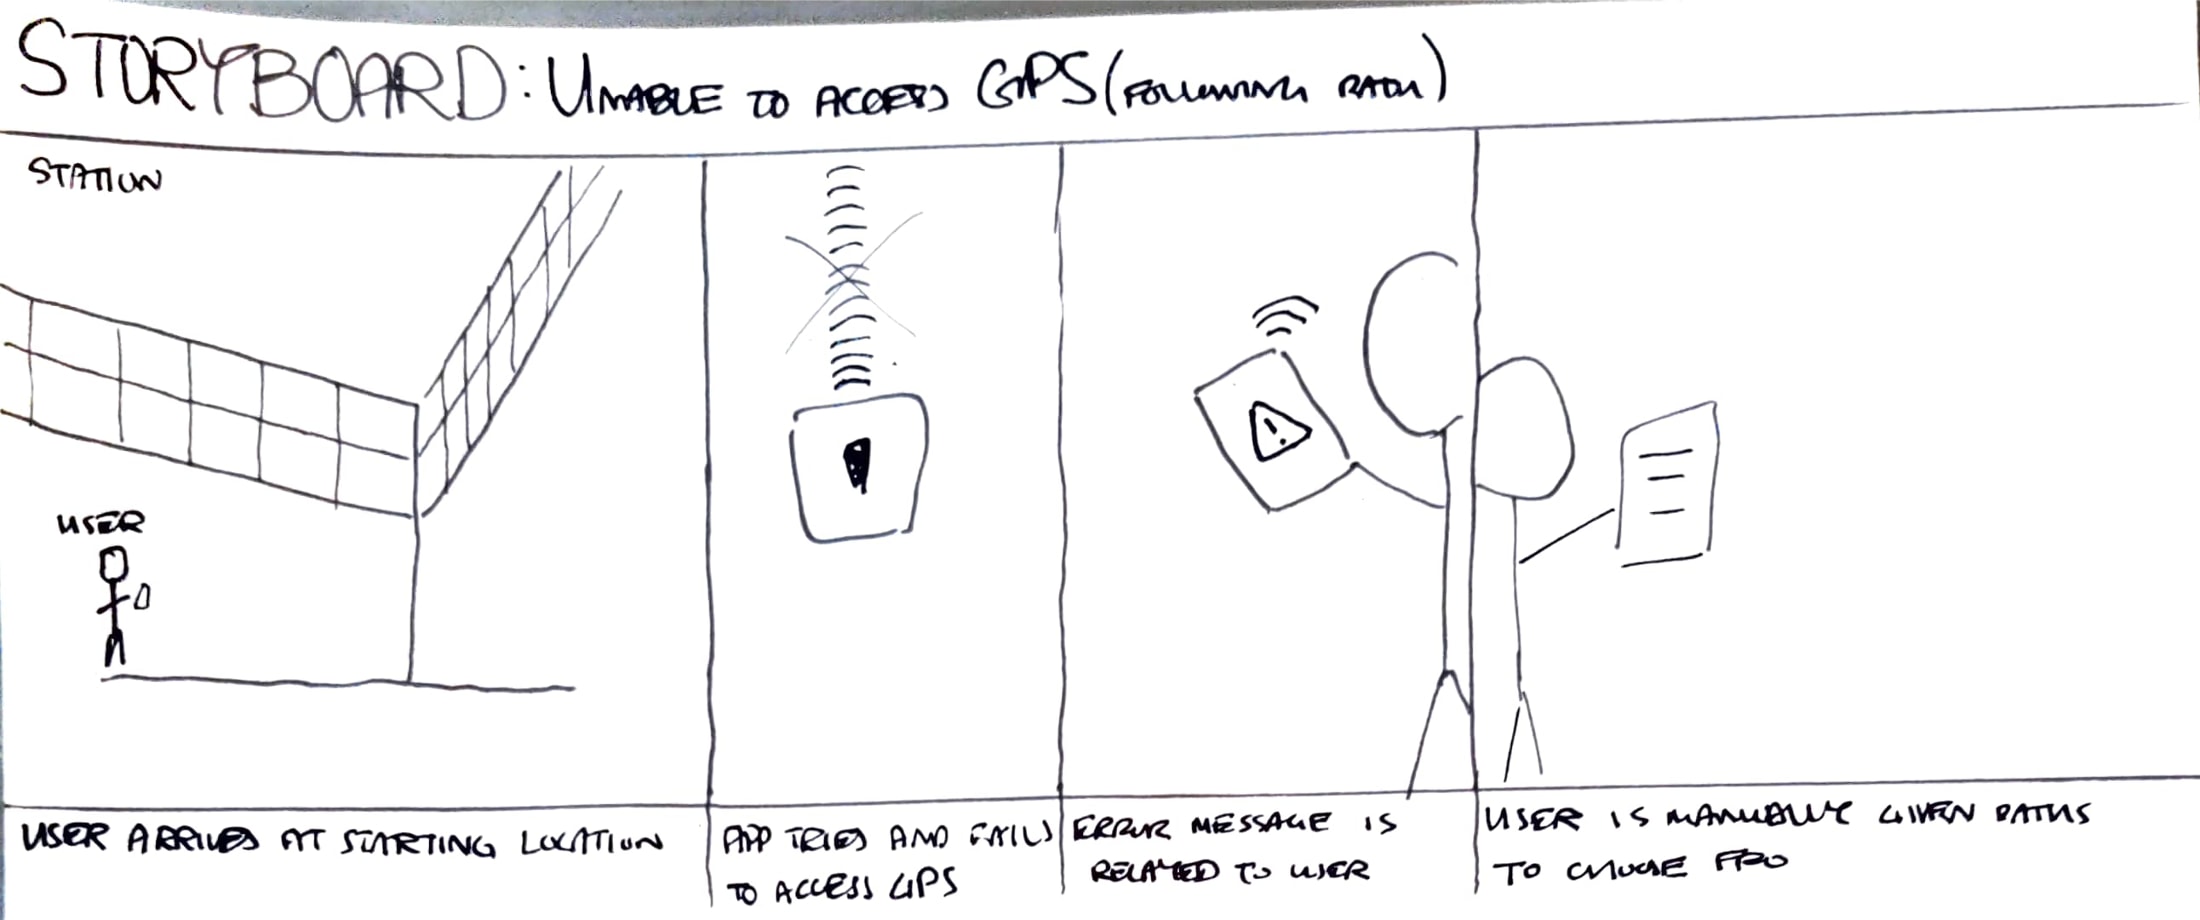 STORYBOARD: UNABLE TO ACCESS GPS (FOLLOWING PATH)
STATION
USER
!
USER ARRIVES AT STARTING LOCATION
APP TRIES AND FAILS
TO ACCESS GPS
ERROR MESSAGE IS
RELAYED TO USER
USER IS MANUALLY GIVEN PATHS
TO CHOOSE FRO